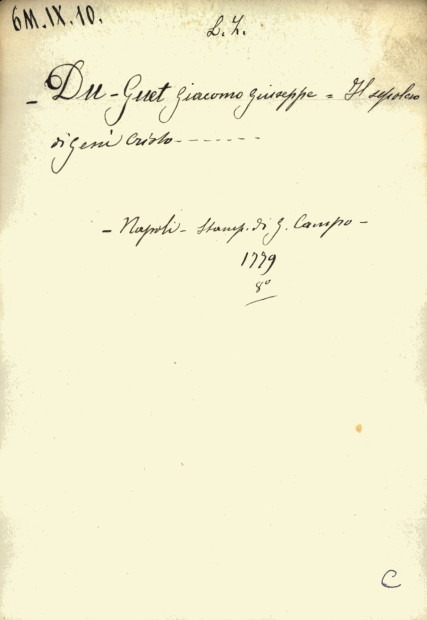 6M.IX.10.
L. Z.
- Du-Guet Giacomo Giuseppe = Il sepolcro
di Gesù Cristo - - - - - - -
- Napoli - Stamp. di G. Campo -
1779
8º
C